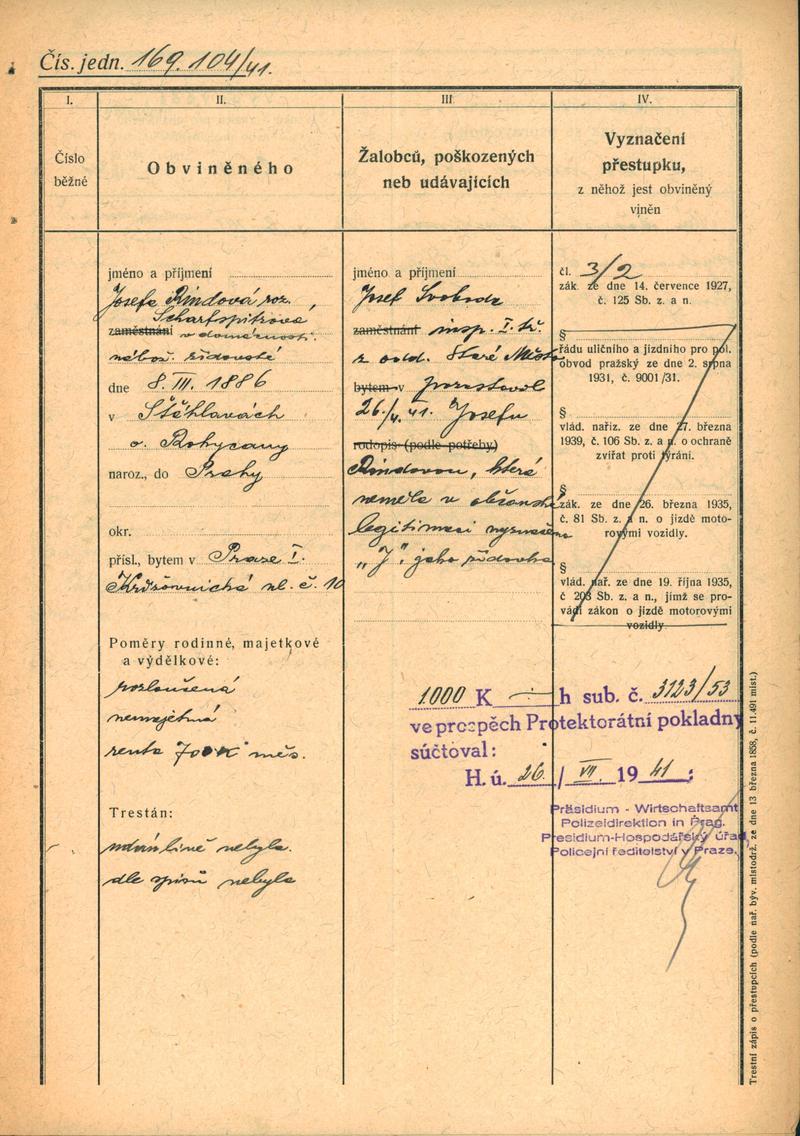 Čís. jedn. 169.104/41.
I.
Číslo
běžné
II.
Obviněného
III.
Žalobců, poškozených
neb udávajících
IV.
Vyznačení
přestupku,
z něhož jest obviněný
viněn
jméno a příjmení
Josefa Rindová roz.
Scharfspitzová
zaměstnání v domácnosti.
nábož. židovské
dne 8. III. 1886
v Štěhlavách
o. Rokycany
naroz., do Prahy
okr.
přísl., bytem v Praze I.
Křižovnická ul. č. 10
Poměry rodinné, majetkové
a výdělkové:
rozloučená
nemajetná
renta 700K měs.
Trestán:
nebyla.
dle spisů nebyla
jméno a příjmení
Josef Svoboda
zaměstnání insp. I. tř.
z odd. Staré Město
bytem v pozastavil
26./4. 41. Josefu
rodopis (podle potřeby)
Rindovou, která
neměla v občanské
legitimaci vyznačeno
„J“. jako židovka
čl. 3/2
zák. ze dne 14. července 1927,
č. 125 Sb. z. a n.
§
řádu uličního a jízdního pro pol.
obvod pražský ze dne 2. srpna
1931, č. 9001/31.
§
vlád. nařiz. ze dne 27. března
1939, č. 106 Sb. z. a n. o ochraně
zvířat proti týrání.
§
zák. ze dne 26. března 1935,
č. 81 Sb. z. a n. o jízdě moto-
rovými vozidly.
§
vlád. nař. ze dne 19. října 1935,
č 203 Sb. z. a n., jímž se pro-
vádí zákon o jízdě motorovými
vozidly
1000 K — h sub. č. 3123/53
ve prospěch Protektorátní pokladny
súčtoval:
H. ú. 26. / VII. 1941 :
Präsidium - Wirtschaftsamt
Polizeidirektion in Prag.
Presidium-Hospodářský úřad
Policejní ředitelství v Praze.
Trestní zápis o přestupcích (podle nař. býv. místodrž. ze dne 13 března 1858, č. 11.491 míst.)